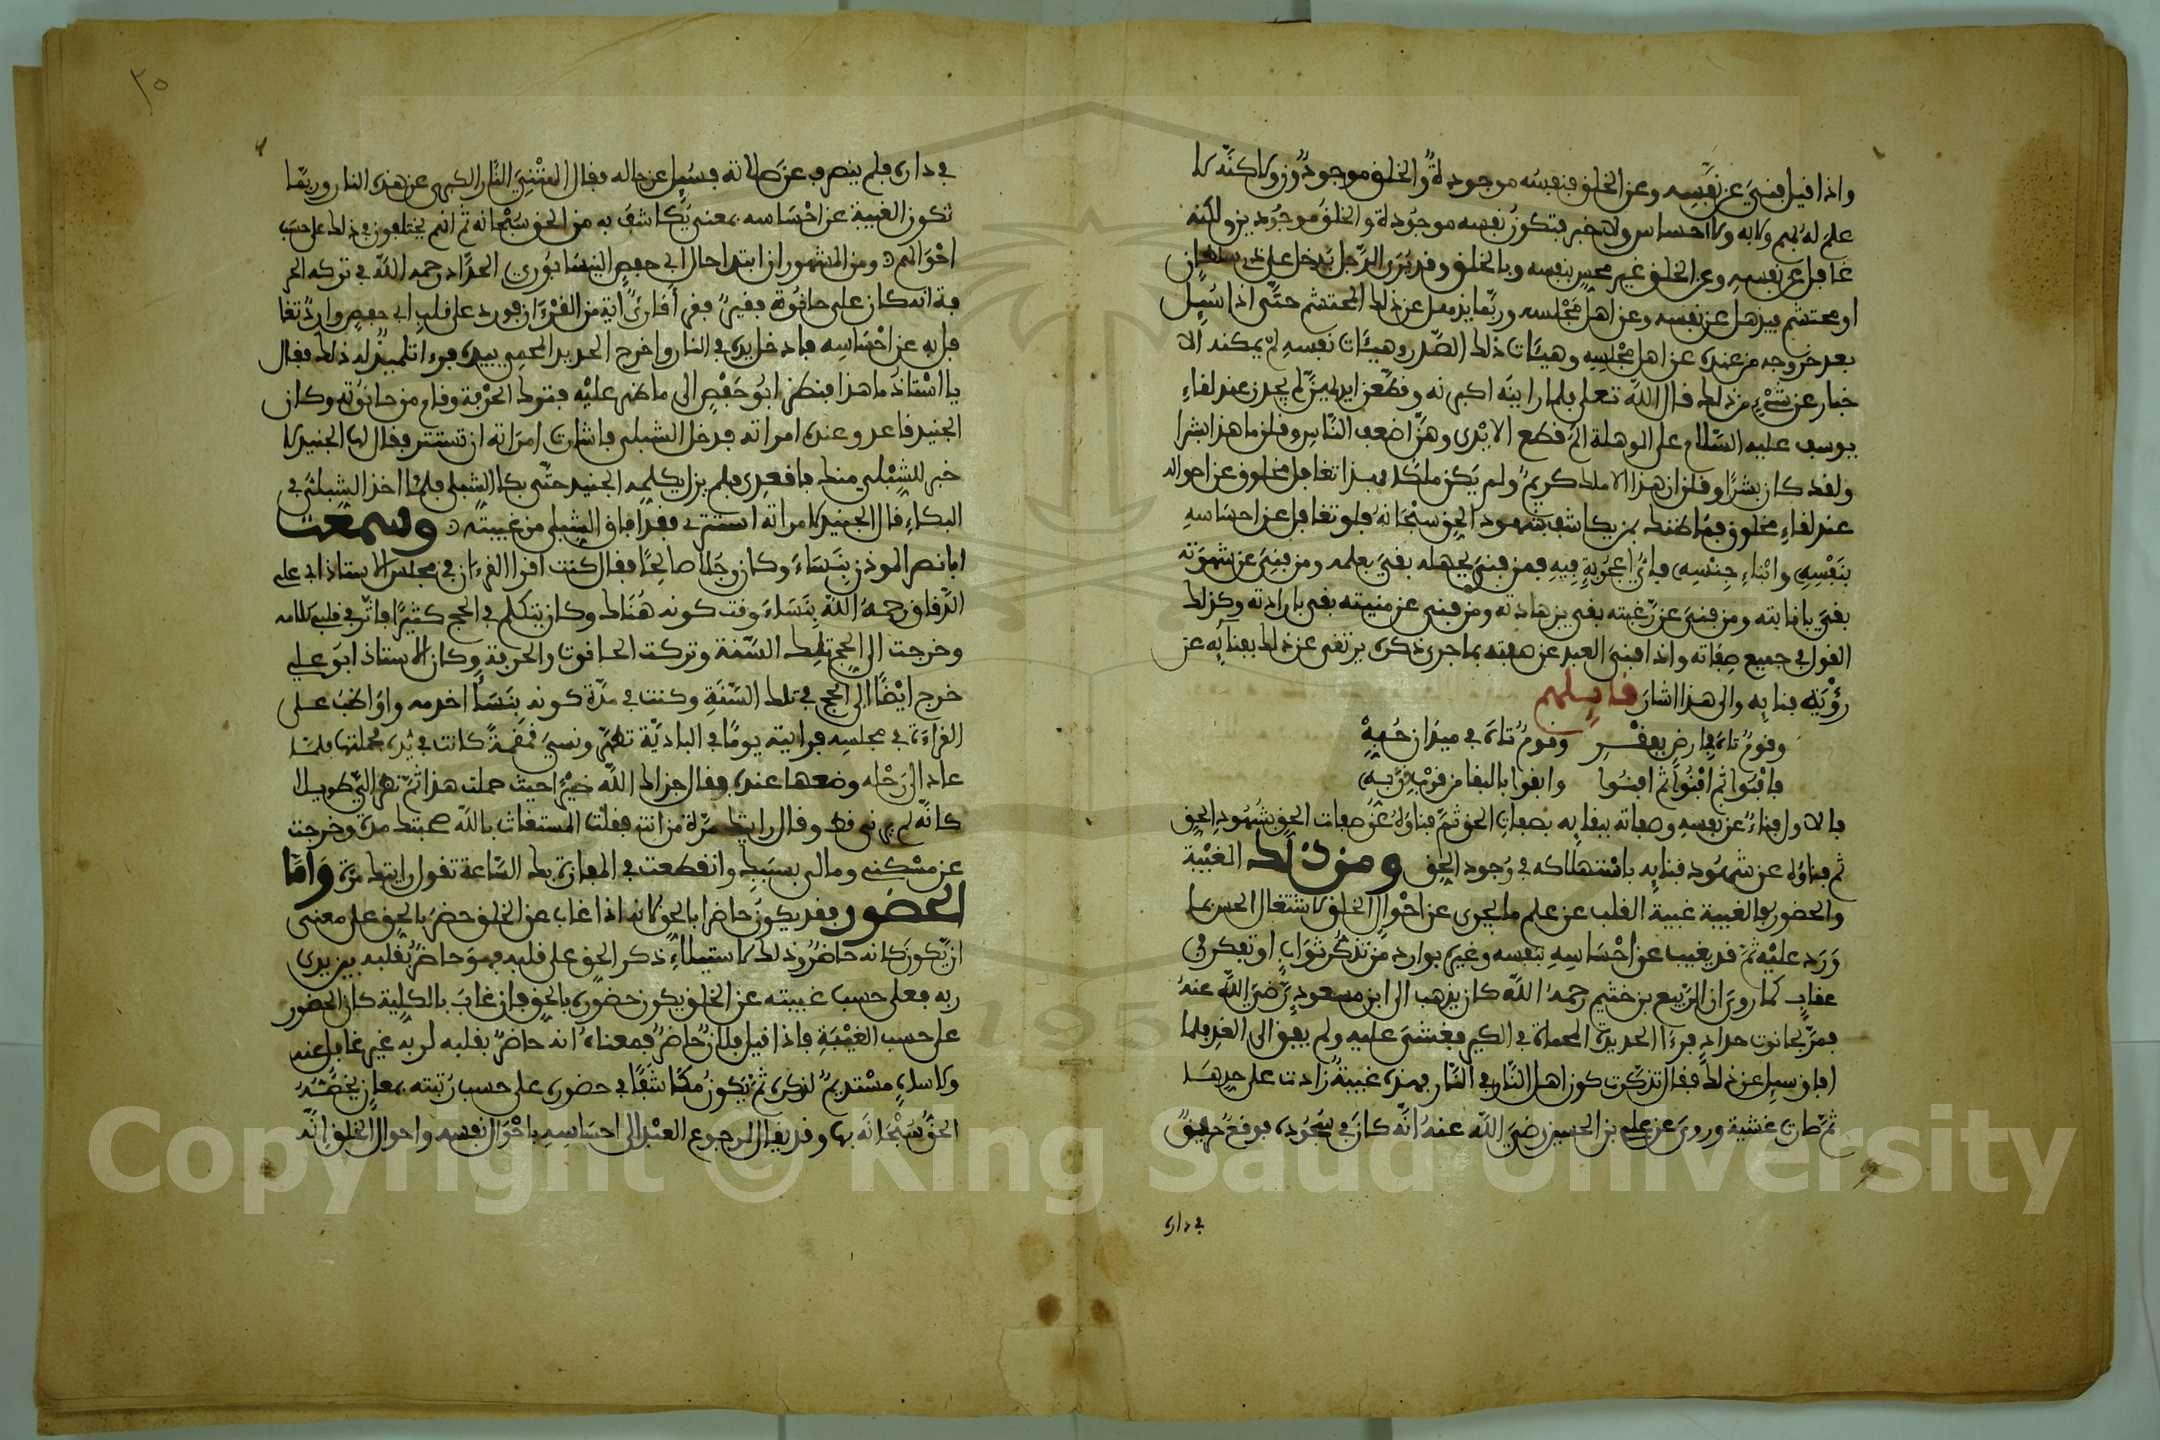 واذا قيل فني عن نفسه وعن الخلق فنفسه موجودة والخلق موجودون ولاكنه لا
علم له بهم ولا به ولا احساس ولا خبر فتكون نفسه موجودة والخلق موجودين ولكنه
غافل عن نفسه وعن الخلق غير محس بنفسه وبالخلق وقد ترى الرجل يدخل على ذي سلطان
او محتشم فيذهل عن نفسه وعن اهل مجلسه وربما يذهل عن ذلك المحتشم حتى اذا سئل
بعد خروجه من عنده عن اهل مجلسه وهيئات ذلك الصدر وهيئات نفسه لم يمكنه الا
خبار عن شيء من ذلك قال الله تعلى فلما راينه اكبرنه وقطعن ايديهن لم يجدن عند لقاء
يوسف عليه السلام على الوهلة الم قطع الايدي وهن اضعف الناس وقلن ما هذا بشرا
ولقد كان بشرا وقلن ان هذا الا ملك كريم ولم يكن ملكا فهذا تغافل مخلوق عن احواله
عند لقاء مخلوق فما ظنك بمن يكاشف بشهود الحق سبحانه فلو تغافل عن احساسه
بنفسه وابناء جنسه فاي اعجوبة فيه فمن فني عن جهله بقي بعلمه ومن فني عن شهوته
بقي بانابته ومن فني عن رغبته بقي بزهادته ومن فني عن منيته بقي بارادته وكذلك
القول في جميع صفاته واذا فني العبد عن صفته بما جرى ذكره يرتقي عن ذلك بفنائه عن
رؤية فنائه والى هذا اشار قايلهم
وقوم تاه في ارض بقفر وقوم تاه في ميدان حبه
فافنوا ثم افنوا ثم افنوا وابقوا بالبقا من قرب ربه
فالاول فناء عن نفسه وصفاته ببقائه بصفات الحق ثم فناؤه عن صفات الحق بشهود الحق
ثم فناؤه عن شهود فنائه باستهلاكه في وجود الحق ومن ذلك الغيبة
والحضور فالغيبة غيبة القلب عن علم ما يجري عن احوال الخلق لاشتغال الحس بما
ورد عليه ثم قد يغيب عن احساسه بنفسه وغيره بوارد من تذكر ثواب او تفكر في
عقاب كما روي ان الربيع بن خثيم رحمه الله كان يذهب الى ابن مسعود رضي الله عنه
فمر بحانوت حداد فرءا الحديدة المحماة في الكير فغشي عليه ولم يفق الى الغد فلما
افاق سئل عن ذلك فقال تذكرت كون اهل النار في النار فهذه غيبة زادت على حدها
ثم صارت غشية وروي عن علي بن الحسين رضي الله عنه انه كان في سجوده فوقع حريق
في داره
٣٥
في داره فلم ينصرف عن صلاته فسئل عن حاله فقال الهتني النار الكبرى عن هذه النار وربما
تكون الغيبة عن احساسه بمعنى يكاشف به من الحق سبحانه ثم انهم يختلفون في ذلك على حسب
احوالهم ومن المشهور ان ابتدا حال ابي حفص النيسابوري الحداد رحمه الله في تركه الحر
فة انه كان على حانوته فقير فقرا قارئ اية من القرءان فورد على قلب ابي حفص وارد تغا
فل به عن احساسه فادخل يده في النار واخرج الحديد المحمي بيده فرءا تلميذ له ذلك فقال
يا استاذ ما هذا فنظر ابو حفص الى ما ظهر عليه فترك الحرفة وقام من حانوته وكان
الجنيد قاعدا وعنده امراته فدخل الشبلي فاشارت امراته ان تستتر فقال لها الجنيد لا
خبر للشبلي منك فاقعدي فلم يزل يكلمه الجنيد حتى بكا الشبلي فلما اخذ الشبلي في
البكاء قال الجنيد لامراته استتري فقد افاق الشبلي من غيبته وسمعت
ابا نصر الموذن بنسا وكان رجلا صالحا فقال كنت اقرا القرءان في مجلس الاستاذ ابي علي
الدقاق رحمه الله بنسا وقت كونه هناك وكان يتكلم في الحج كثيرا فاثر في قلبي كلامه
وخرجت الى الحج تلك السنة وتركت الحانوت والحرفة وكان الاستاذ ابو علي
خرج ايضا الى الحج في تلك السنة وكنت في مدة كونه بنسا اخدمه واواظب على
القراءة في مجلسه فرايته يوما في البادية تطهر ونسي قمقمة كانت في يده فحملتها فلما
عاد الى رحله وضعها عنده فقال جزاك الله خيرا حيث حملت هذا ثم نظر الي طويلا
كانه لم يرني قط وقال رايتك مرة من انت فقلت المستغاث بالله صحبتك مدة وخرجت
عن مسكني ومالي بسببك وانقطعت في المفازة بك الساعة تقول رايتك مرة واما
الحضور فقد يكون حاضرا بالحق لانه اذا غاب عن الخلق حضر بالحق على معنى
ان يكون كانه حاضر وذلك لاستيلاء ذكر الحق على قلبه فهو حاضر بقلبه بين يدي
ربه فعلى حسب غيبته عن الخلق يكون حضوره بالحق فان غاب بالكلية كان الحضور
على حسب الغيبة فاذا قيل فلان حاضر فمعناه انه حاضر بقلبه لربه غير غافل عنه
ولا ساه مستديم لذكره ثم يكون مكاشفا في حضوره على حسب رتبته بمعان يخصه
الحق سبحانه بها وقد يقال لرجوع العبد الى احساسه باحوال نفسه واحوال الخلق انه
Copyright © King Saud University